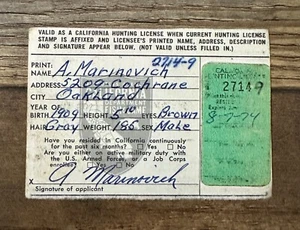 VALID AS A CALIFORNIA HUNTING LICENSE WHEN CURRENT HUNTING LICENSE
STAMP IS AFFIXED AND LICENSEE'S PRINTED NAME, ADDRESS, DESCRIPTION
AND SIGNATURE APPEAR BELOW. (NOT VALID UNLESS FILLED IN.)
PRINT: 27149
NAME A. Marinovich
ADDRESS 5209 Cochrane
CITY Oakland
YEAR OF
BIRTH 1909 HEIGHT 5 EYES Brown
HAIR Gray WEIGHT 185 SEX Male
Have you resided in California continuously
for the past six months? Yes No
Are you either on active military duty with
the U.S. Armed Forces, or a Job Corps
enrollee? Yes No
A Marinovich
Signature of applicant
HUNTING
27149